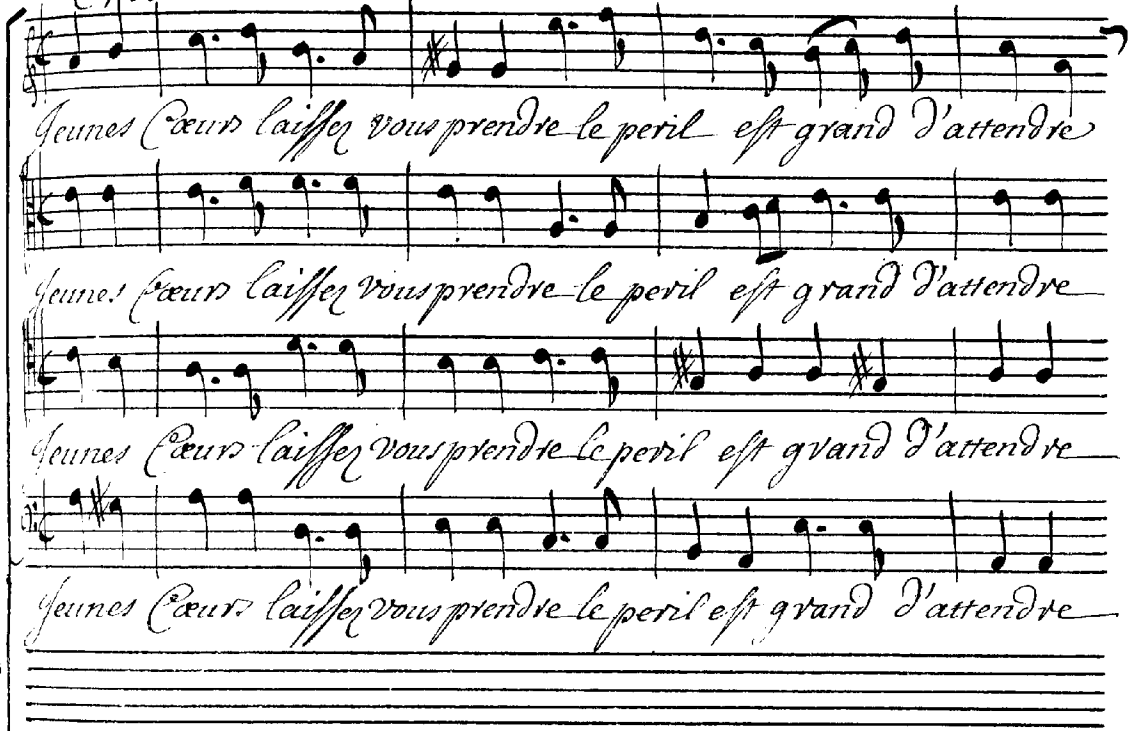 Jeunes Cœurs laissez vous prendre le peril est grand d'attendre
Jeunes Cœurs laissez vous prendre le peril est grand d'attendre
Jeunes Cœurs laissez vous prendre le peril est grand d'attendre
Jeunes Cœurs laissez vous prendre le peril est grand d'attendre